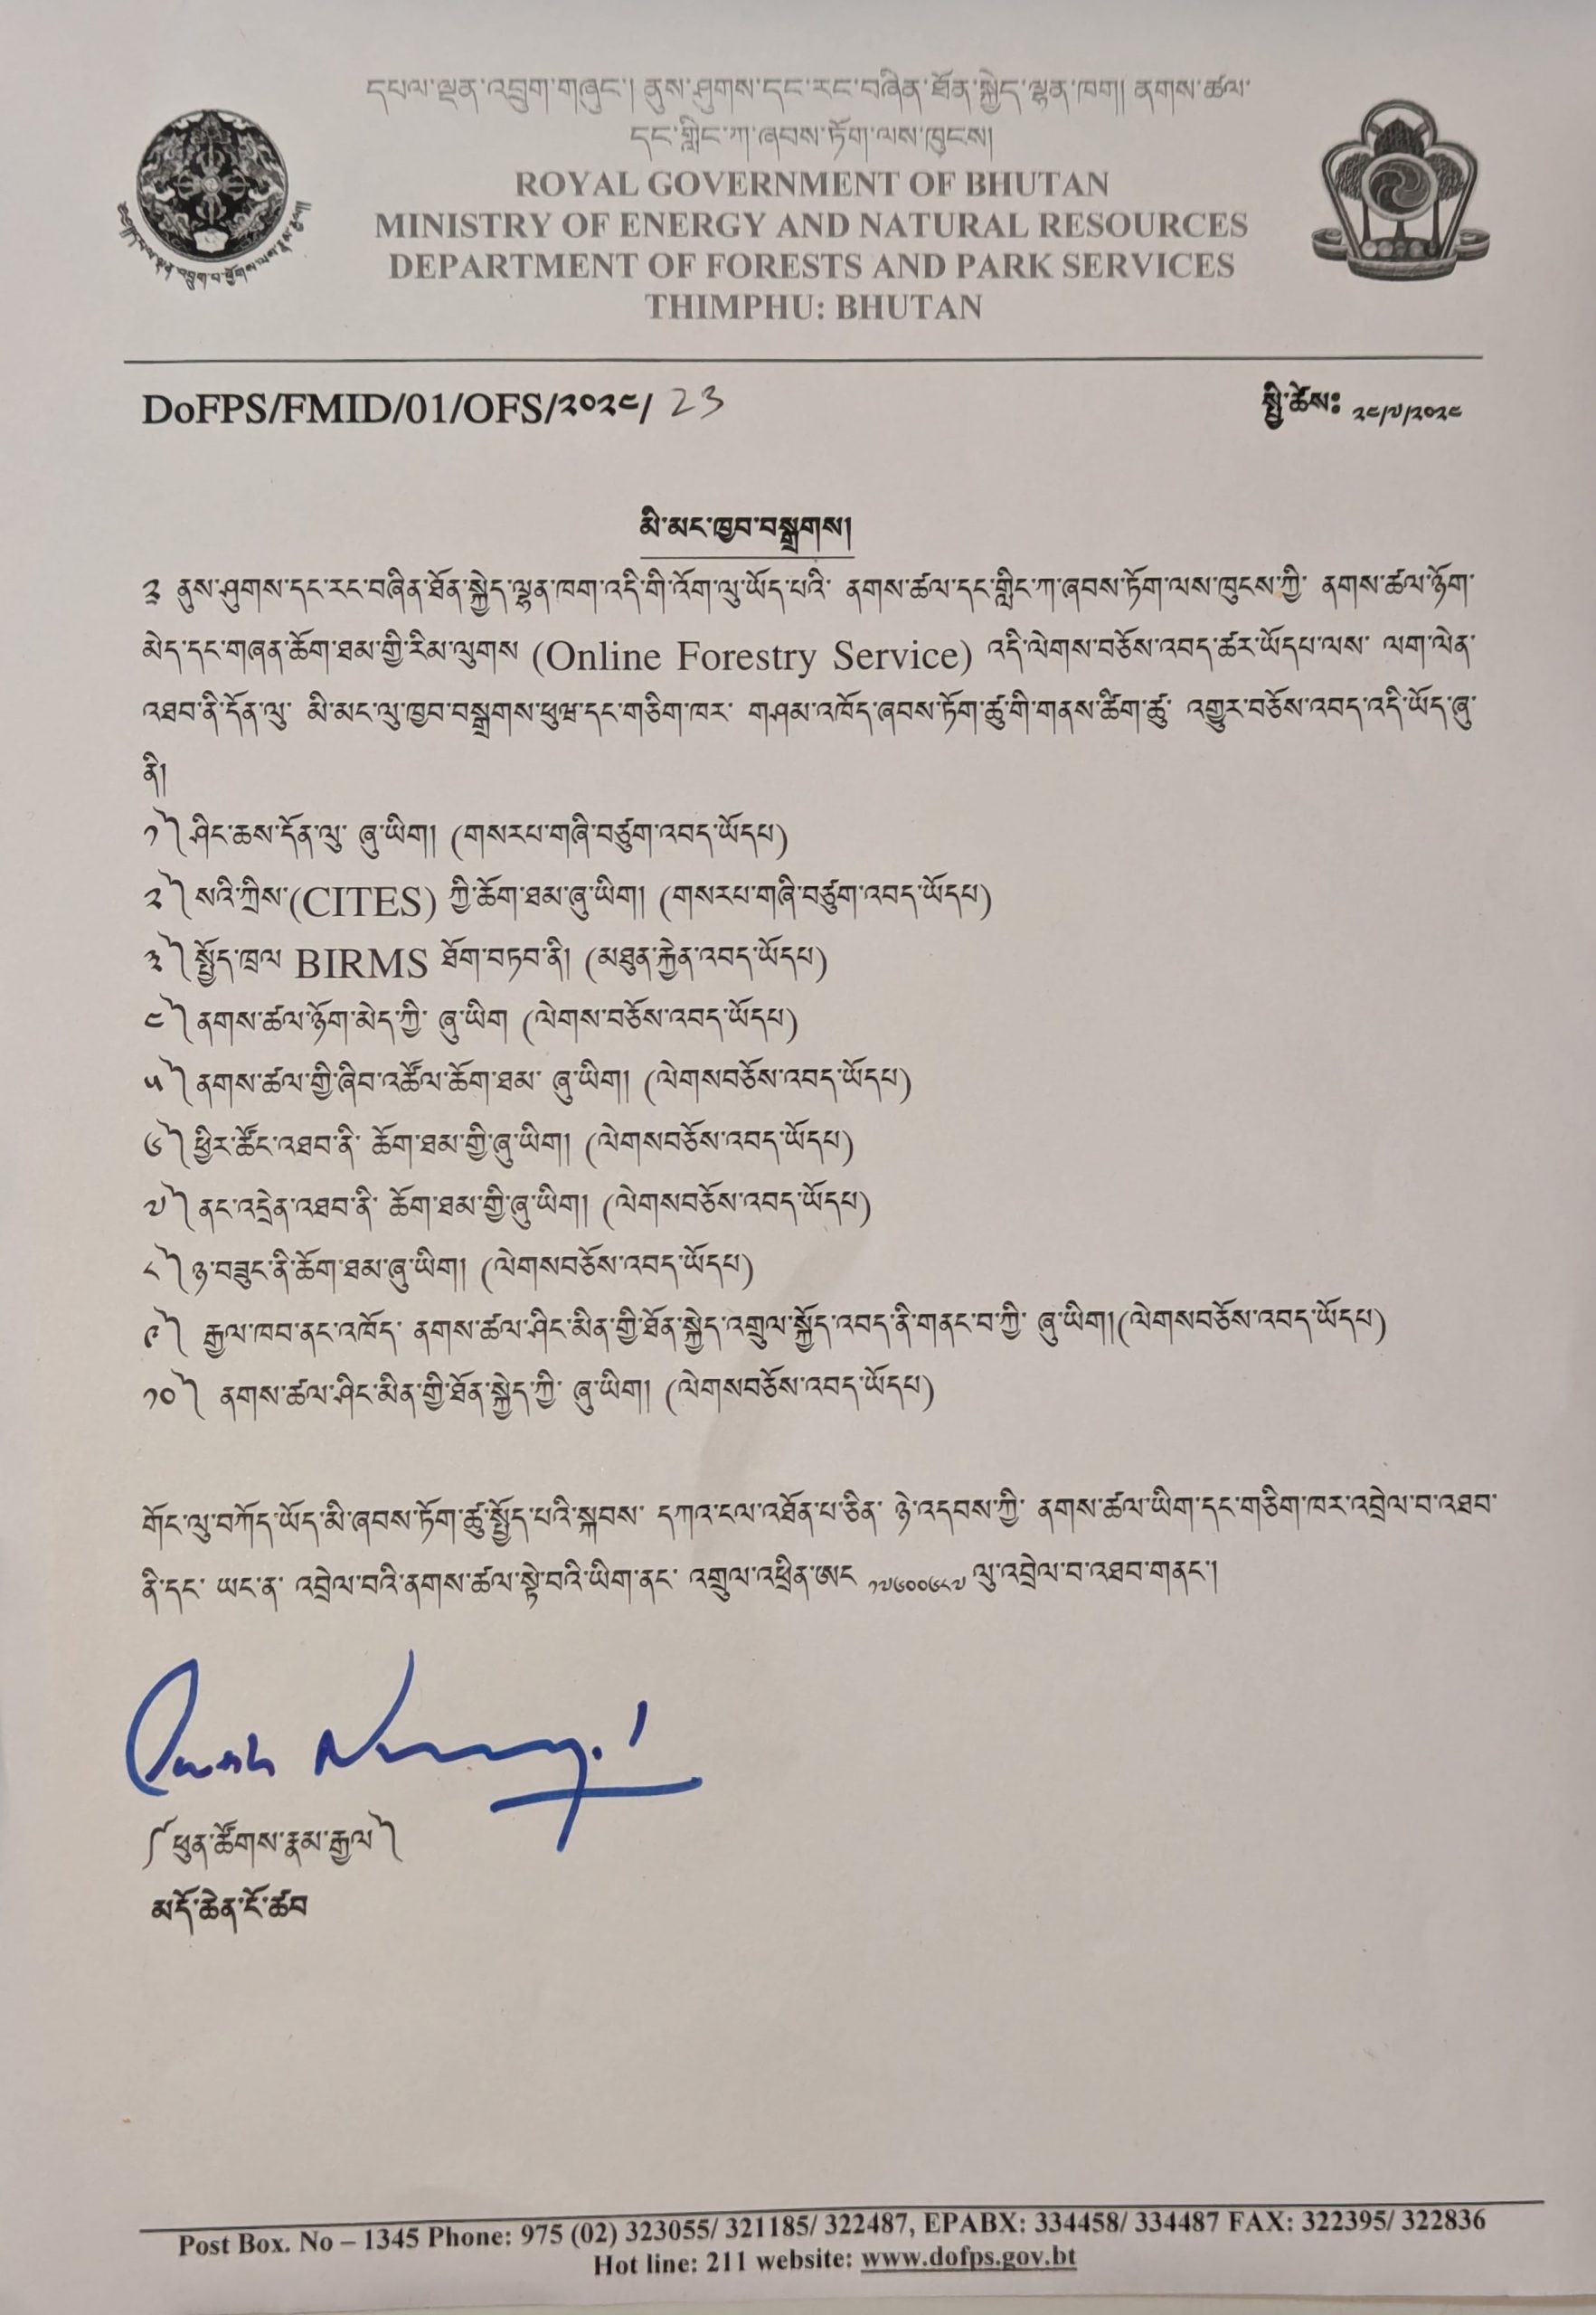 དཔལ་ལྡན་འབྲུག་གཞུང་། ནུས་ཤུགས་དང་རང་བཞིན་ཐོན་སྐྱེད་ལྷན་ཁག། ནགས་ཚལ་
དང་གླིང་ཀ་ཞབས་ཏོག་ལས་ཁུངས།
ROYAL GOVERNMENT OF BHUTAN
MINISTRY OF ENERGY AND NATURAL RESOURCES
DEPARTMENT OF FORESTS AND PARK SERVICES
THIMPHU: BHUTAN
DoFPS/FMID/01/OFS/༢༠༢༤/ 23
སྤྱི་ཚེས༔ ༢༤/༧/༢༠༢༤
མི་མང་ཁྱབ་བསྒྲགས།
༉ ནུས་ཤུགས་དང་རང་བཞིན་ཐོན་སྐྱེད་ལྷན་ཁག་འདི་གི་འོག་ལུ་ཡོད་པའི་ ནགས་ཚལ་དང་གླིང་ཀ་ཞབས་ཏོག་ལས་ཁུངས་ཀྱི་ ནགས་ཚལ་ཉོག་
མེད་དང་གཞན་ཆོག་ཐམ་གྱི་རིམ་ལུགས (Online Forestry Service) འདི་ལེགས་བཅོས་འབད་ཚར་ཡོདཔ་ལས་ ལག་ལེན་
འཐབ་ནི་དོན་ལུ་ མི་མང་ལུ་ཁྱབ་བསྒྲགས་ཕུཝ་དང་གཅིག་ཁར་ གཤམ་འཁོད་ཞབས་ཏོག་ཚུ་གི་གནས་ཚིག་ཚུ་ འགྱུར་བཅོས་འབད་འདི་ཡོད་ཞུ་
ནི།
༡༽ ཤིང་ཆས་དོན་ལུ་ ཞུ་ཡིག། (གསརཔ་གཞི་བཙུག་འབད་ཡོདཔ)
༢༽ སའི་ཀྲིས་(CITES) ཀྱི་ཆོག་ཐམ་ཞུ་ཡིག། (གསརཔ་གཞི་བཙུག་འབད་ཡོདཔ)
༣༽ སྤྱོད་ཁྲལ BIRMS ཐོག་བཏབ་ནི། (མཐུན་རྐྱེན་འབད་ཡོདཔ)
༤༽ ནགས་ཚལ་ཉོག་མེད་ཀྱི་ ཞུ་ཡིག (ལེགས་བཅོས་འབད་ཡོདཔ)
༥༽ ནགས་ཚལ་གྱི་ཞིབ་འཚོལ་ཆོག་ཐམ་ ཞུ་ཡིག། (ལེགསབཅོས་འབད་ཡོདཔ)
༦༽ ཕྱིར་ཚོང་འཐབ་ནི་ ཆོག་ཐམ་གྱི་ཞུ་ཡིག། (ལེགསབཅོས་འབད་ཡོདཔ)
༧༽ ནང་འདྲེན་འཐབ་ནི་ ཆོག་ཐམ་གྱི་ཞུ་ཡིག། (ལེགསབཅོས་འབད་ཡོདཔ)
༨༽ ཉ་བཟུང་ནི་ཆོག་ཐམ་ཞུ་ཡིག། (ལེགསབཅོས་འབད་ཡོདཔ)
༩༽ རྒྱལ་ཁབ་ནང་འཁོད་ ནགས་ཚལ་ཤིང་མིན་གྱི་ཐོན་སྐྱེད་འགྲུལ་སྐྱོད་འབད་ནི་གནང་བ་ཀྱི་ ཞུ་ཡིག།(ལེགསབཅོས་འབད་ཡོདཔ)
༡༠༽ ནགས་ཚལ་ཤིང་མིན་གྱི་ཐོན་སྐྱེད་ཀྱི་ ཞུ་ཡིག། (ལེགསབཅོས་འབད་ཡོདཔ)
གོང་ལུ་བཀོད་ཡོད་མི་ཞབས་ཏོག་ཚུ་སྤྱོད་པའི་སྐབས་ དཀའ་ངལ་འཐོན་པ་ཅིན་ ཉེ་འདབས་ཀྱི་ ནགས་ཚལ་ཡིག་དང་གཅིག་ཁར་འབྲེལ་བ་འཐབ་
ནི་དང་ ཡང་ན་ འབྲེལ་བའི་ནགས་ཚལ་སྡེ་བའི་ཡིག་ནང་ འགྲུལ་འཕྲིན་ཨང ༡༧༦༠༠༦༨༧ ལུ་འབྲེལ་བ་འཐབ་གནང་།
༼ ཕུན་ཚོགས་རྣམ་རྒྱལ༽
མདོ་ཆེན་ངོ་ཚབ
Post Box. No – 1345 Phone: 975 (02) 323055/ 321185/ 322487, EPABX: 334458/ 334487 FAX: 322395/ 322836
Hot line: 211 website: www.dofps.gov.bt